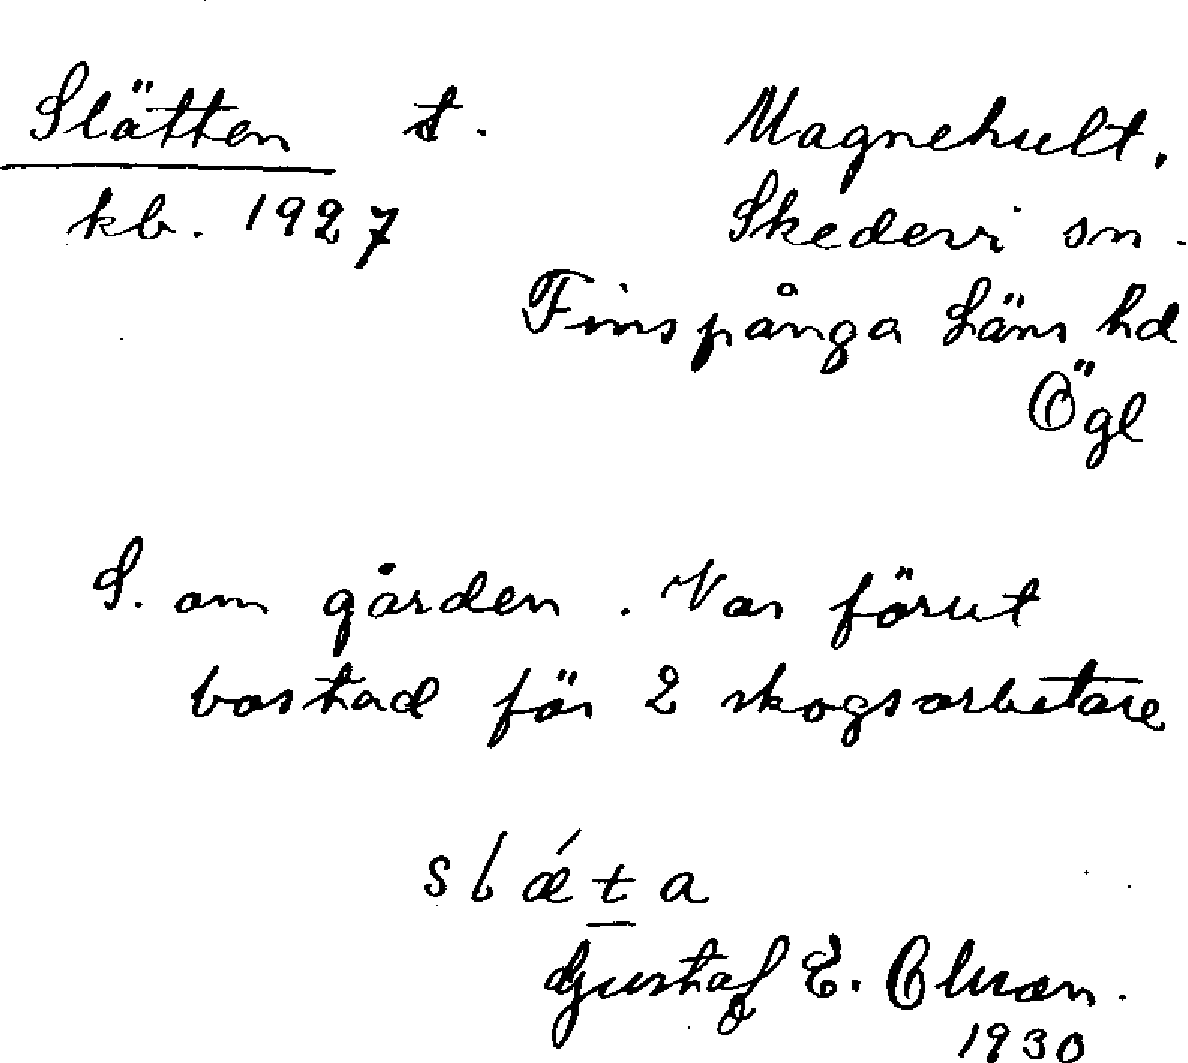 Slätten t. Magnehult.
kb. 1927 Skedevi sn.
Finspånga Läns hd
Ögl
S. om gården. Var förut
bostad för 2 skogsarbetare
slǽta
Gustaf E.
1930